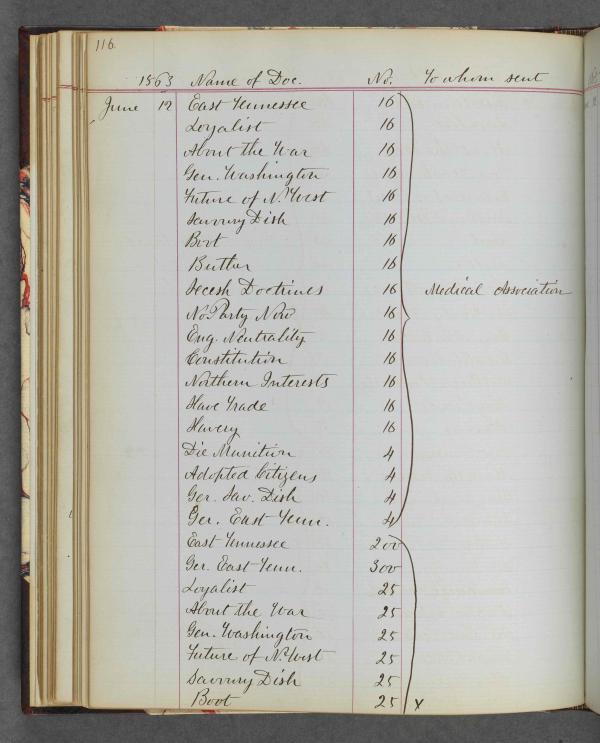 116.
1863 Name of Doc. No. To whom sent
June 12 East Tennessee 16
Loyalist 16
About the War 16
Gen. Washington 16
Future of N. West 16
Savoury Dish 16
Boot 16
Butler 16
Secesh Doctrines 16 Medical Association
No Party Now 16
Eng. Neutrality 16
Constitution 16
Northern Interests 16
Slave Trade 16
Slavery 16
Die Munition 4
Adopted Citizens 4
Ger. Sav. Dish 4
Ger. East Tenn. 4
East Tennessee 200
Ger. East Tenn. 300
Loyalist 25
About the War 25
Gen. Washington 25
Future of N. West 25
Savoury Dish 25
Boot 25 x